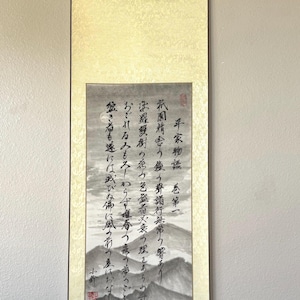 平家物語 巻第一
祇園精舎の鐘の聲諸行無常の響きあり
沙羅雙樹の花の色盛者必衰の理をあらは
おごれる人も久しからず 春の夜の夢のごとし
猛き者も遂には滅びぬ偏に風の前の塵に同じ